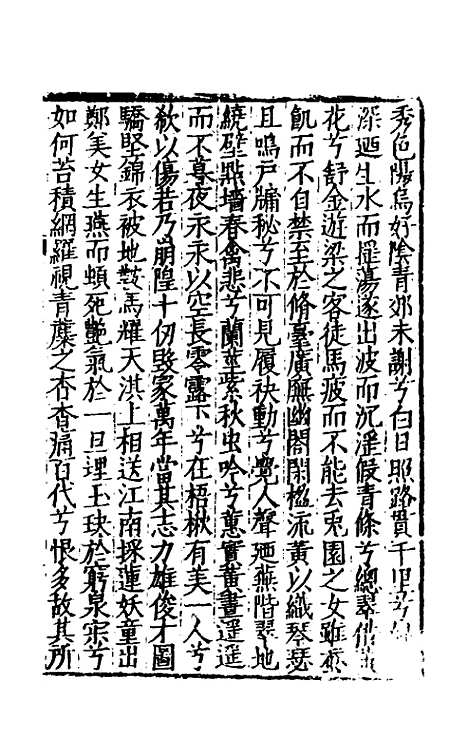 秀色陽烏好陰青郊未謝兮白日照路貫千里兮
深迺生水而摇蕩遂出波而沉淫假青條兮總翠借黃
花兮舒金遊梁之客徒馬疲而不能去兎園之女雖蠶
飢而不自禁至於脩臺廣廡幽閣閑楹流黃以織琴瑟
且鳴戶牖秘兮不可見履袂動兮覺人聲迺蕪階翠地
繞壁點墻春禽悲兮蘭莖紫秋虫吟兮蕙實黃晝遥遥
而不暮夜永永以空長零露下兮在梧楸有美一人兮
欷以傷若乃崩隍十仞毀冢萬年當其志力雄俊才圖
驕堅錦衣被地鞍馬耀天淇上相送江南採蓮妖童出
鄭美女生燕而頓死艷氣於一旦埋玉玦於窮泉宗兮
如何苔積網羅視青蘪之杳杳痛百代兮恨多故其所